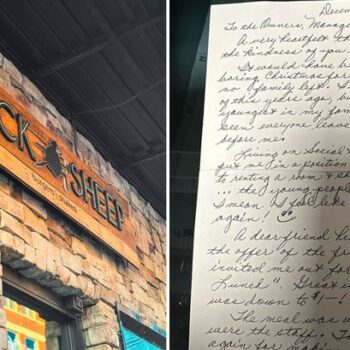 CK SHEEP
burgers | shakes
Decem
To the Owners, Manage
A very heartfelt th
the kindness of you.
It would have b
boring Christmas for
no family left. I
of this years ago, b
youngest in my fam
seen everyone leave
before me.
Living on Social S
put me in a position
to renting a room &
... the young people
I mean I feel like
again!
A dear friend
the offer of the fr
invited me out for
Lunch". Great
was down to $1-1
The meal was w
were the staff. T
again for